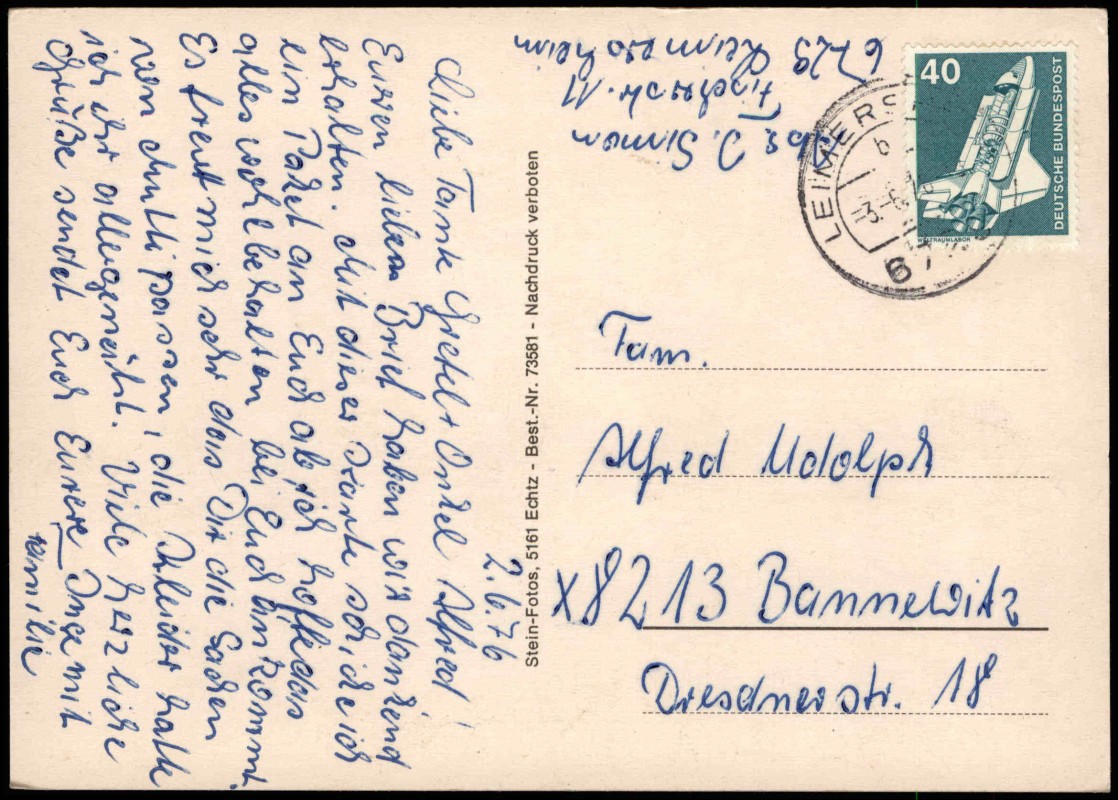 2.6.76
Liebe Tante Gretel + Onkel Alfred!
Euren lieben Brief haben wir dankend
erhalten. Mit dieser Karte schicke ich
ein Paket an Euch ab, ich hoffe das
alles wohlbehalten bei Euch ankommt.
Es freut mich sehr das Dir die Sachen
von Mutti passen, die Kleider hatte
ich ihr alle genäht. Viele herzliche
Grüße sendet Euch Eurere Inge mit
Familie
Stein-Fotos, 5161 Echtz - Best.-Nr. 73581 - Nachdruck verboten
Abs. I. Simon
Fischerstr. 11
6729 Leimersheim
LEIMERS
3.-6.
6729
40
DEUTSCHE BUNDESPOST
WELTRAUMLABOR
Fam.
Alfred Udolph
X8213 Bannewitz
Dresdnerstr. 18